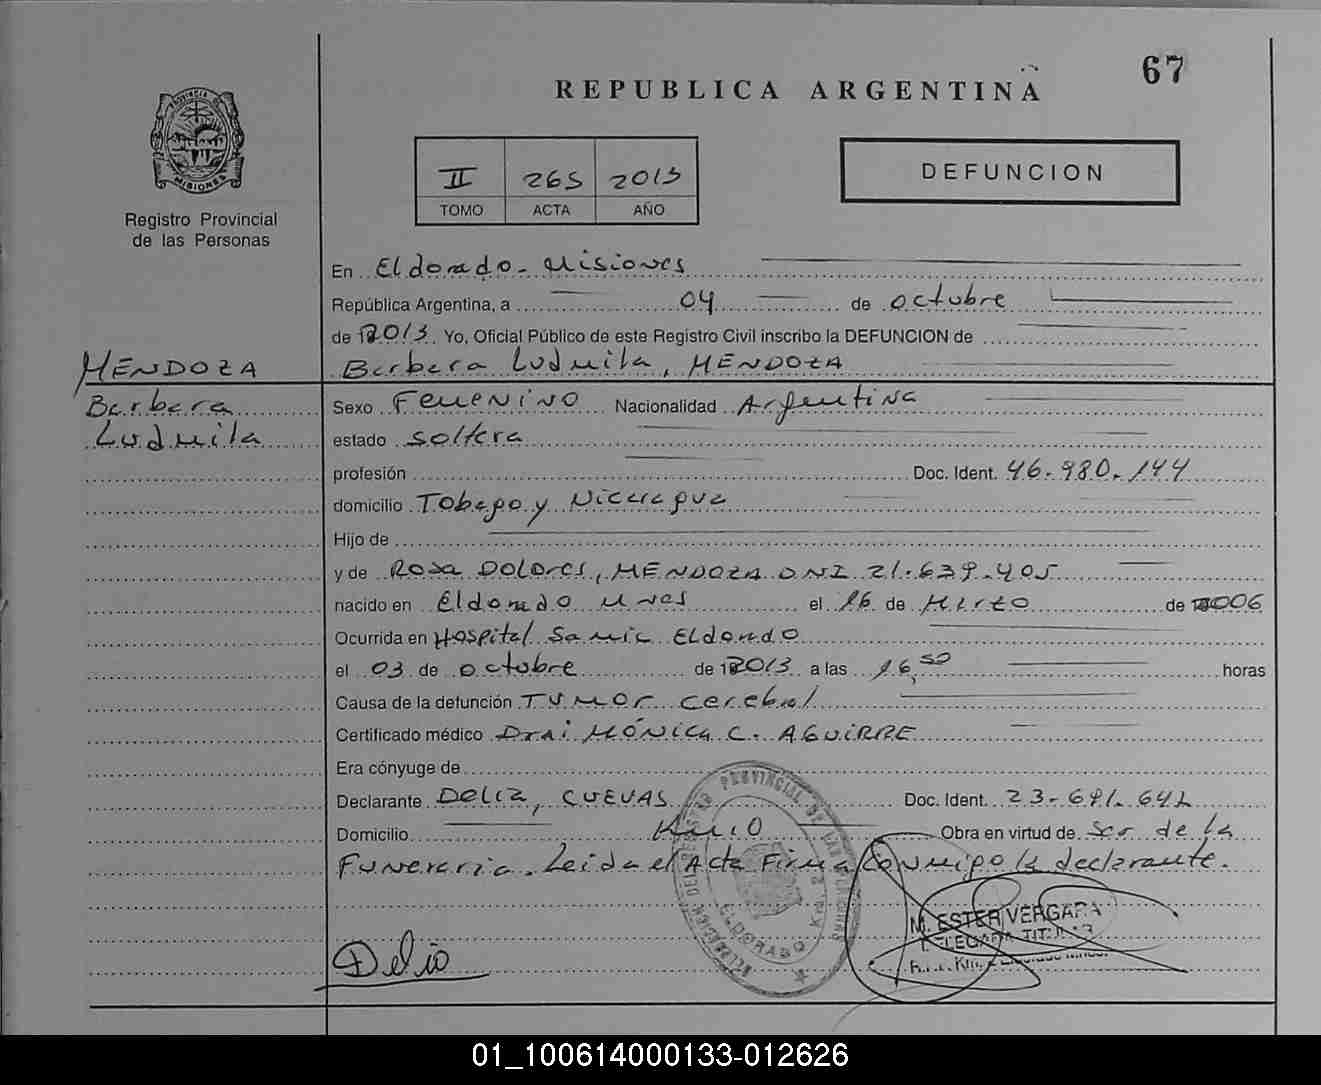 67
REPUBLICA ARGENTINA
PROVINCIA DE
MISIONES
Registro Provincial
de las Personas
II 265 2013
TOMO ACTA AÑO
DEFUNCION
En Eldorado - Misiones
República Argentina, a 04 de octubre
de 2013. Yo, Oficial Público de este Registro Civil inscribo la DEFUNCION de
MENDOZA
Barbara Ludmila, MENDOZA
Barbara
Ludmila
Sexo Femenino Nacionalidad Argentina
estado soltera
profesión Doc. Ident. 46.980.144
domicilio Tobago y Nicaragua
Hijo de
y de Rosa Dolores, MENDOZA DNI 21.639.405
nacido en Eldorado Mnes el 16 de Marzo de 2006
Ocurrida en Hospital Samic Eldorado
el 03 de octubre de 2013 a las 16,50 horas
Causa de la defunción Tumor cerebral
Certificado médico Dra: MÓNICA C. AGUIRRE
Era cónyuge de
Declarante Delia, CUEVAS Doc. Ident. 23.691.642
Domicilio Km 10 Obra en virtud de Ser de la
Funeraria. Leida el Acta Firma Conmigo la declarante.
DELEGACION DEL REGISTRO PROVINCIAL DE LAS PERSONAS
ELDORADO Km. 2
M. ESTER VERGARA
DELEGADA TITULAR
Delia
01_100614000133-012626